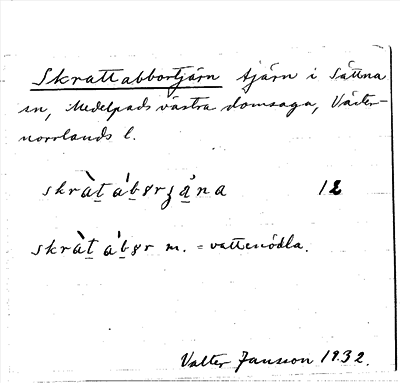 Skrattabbortjärn tjärn i Sättna
sn, Medelpads västra domsaga, Väster-
norrlands l.
skràt ábərʒǻna 12
skràt ábər m. = vattenödla.
Valter Jansson 1932.